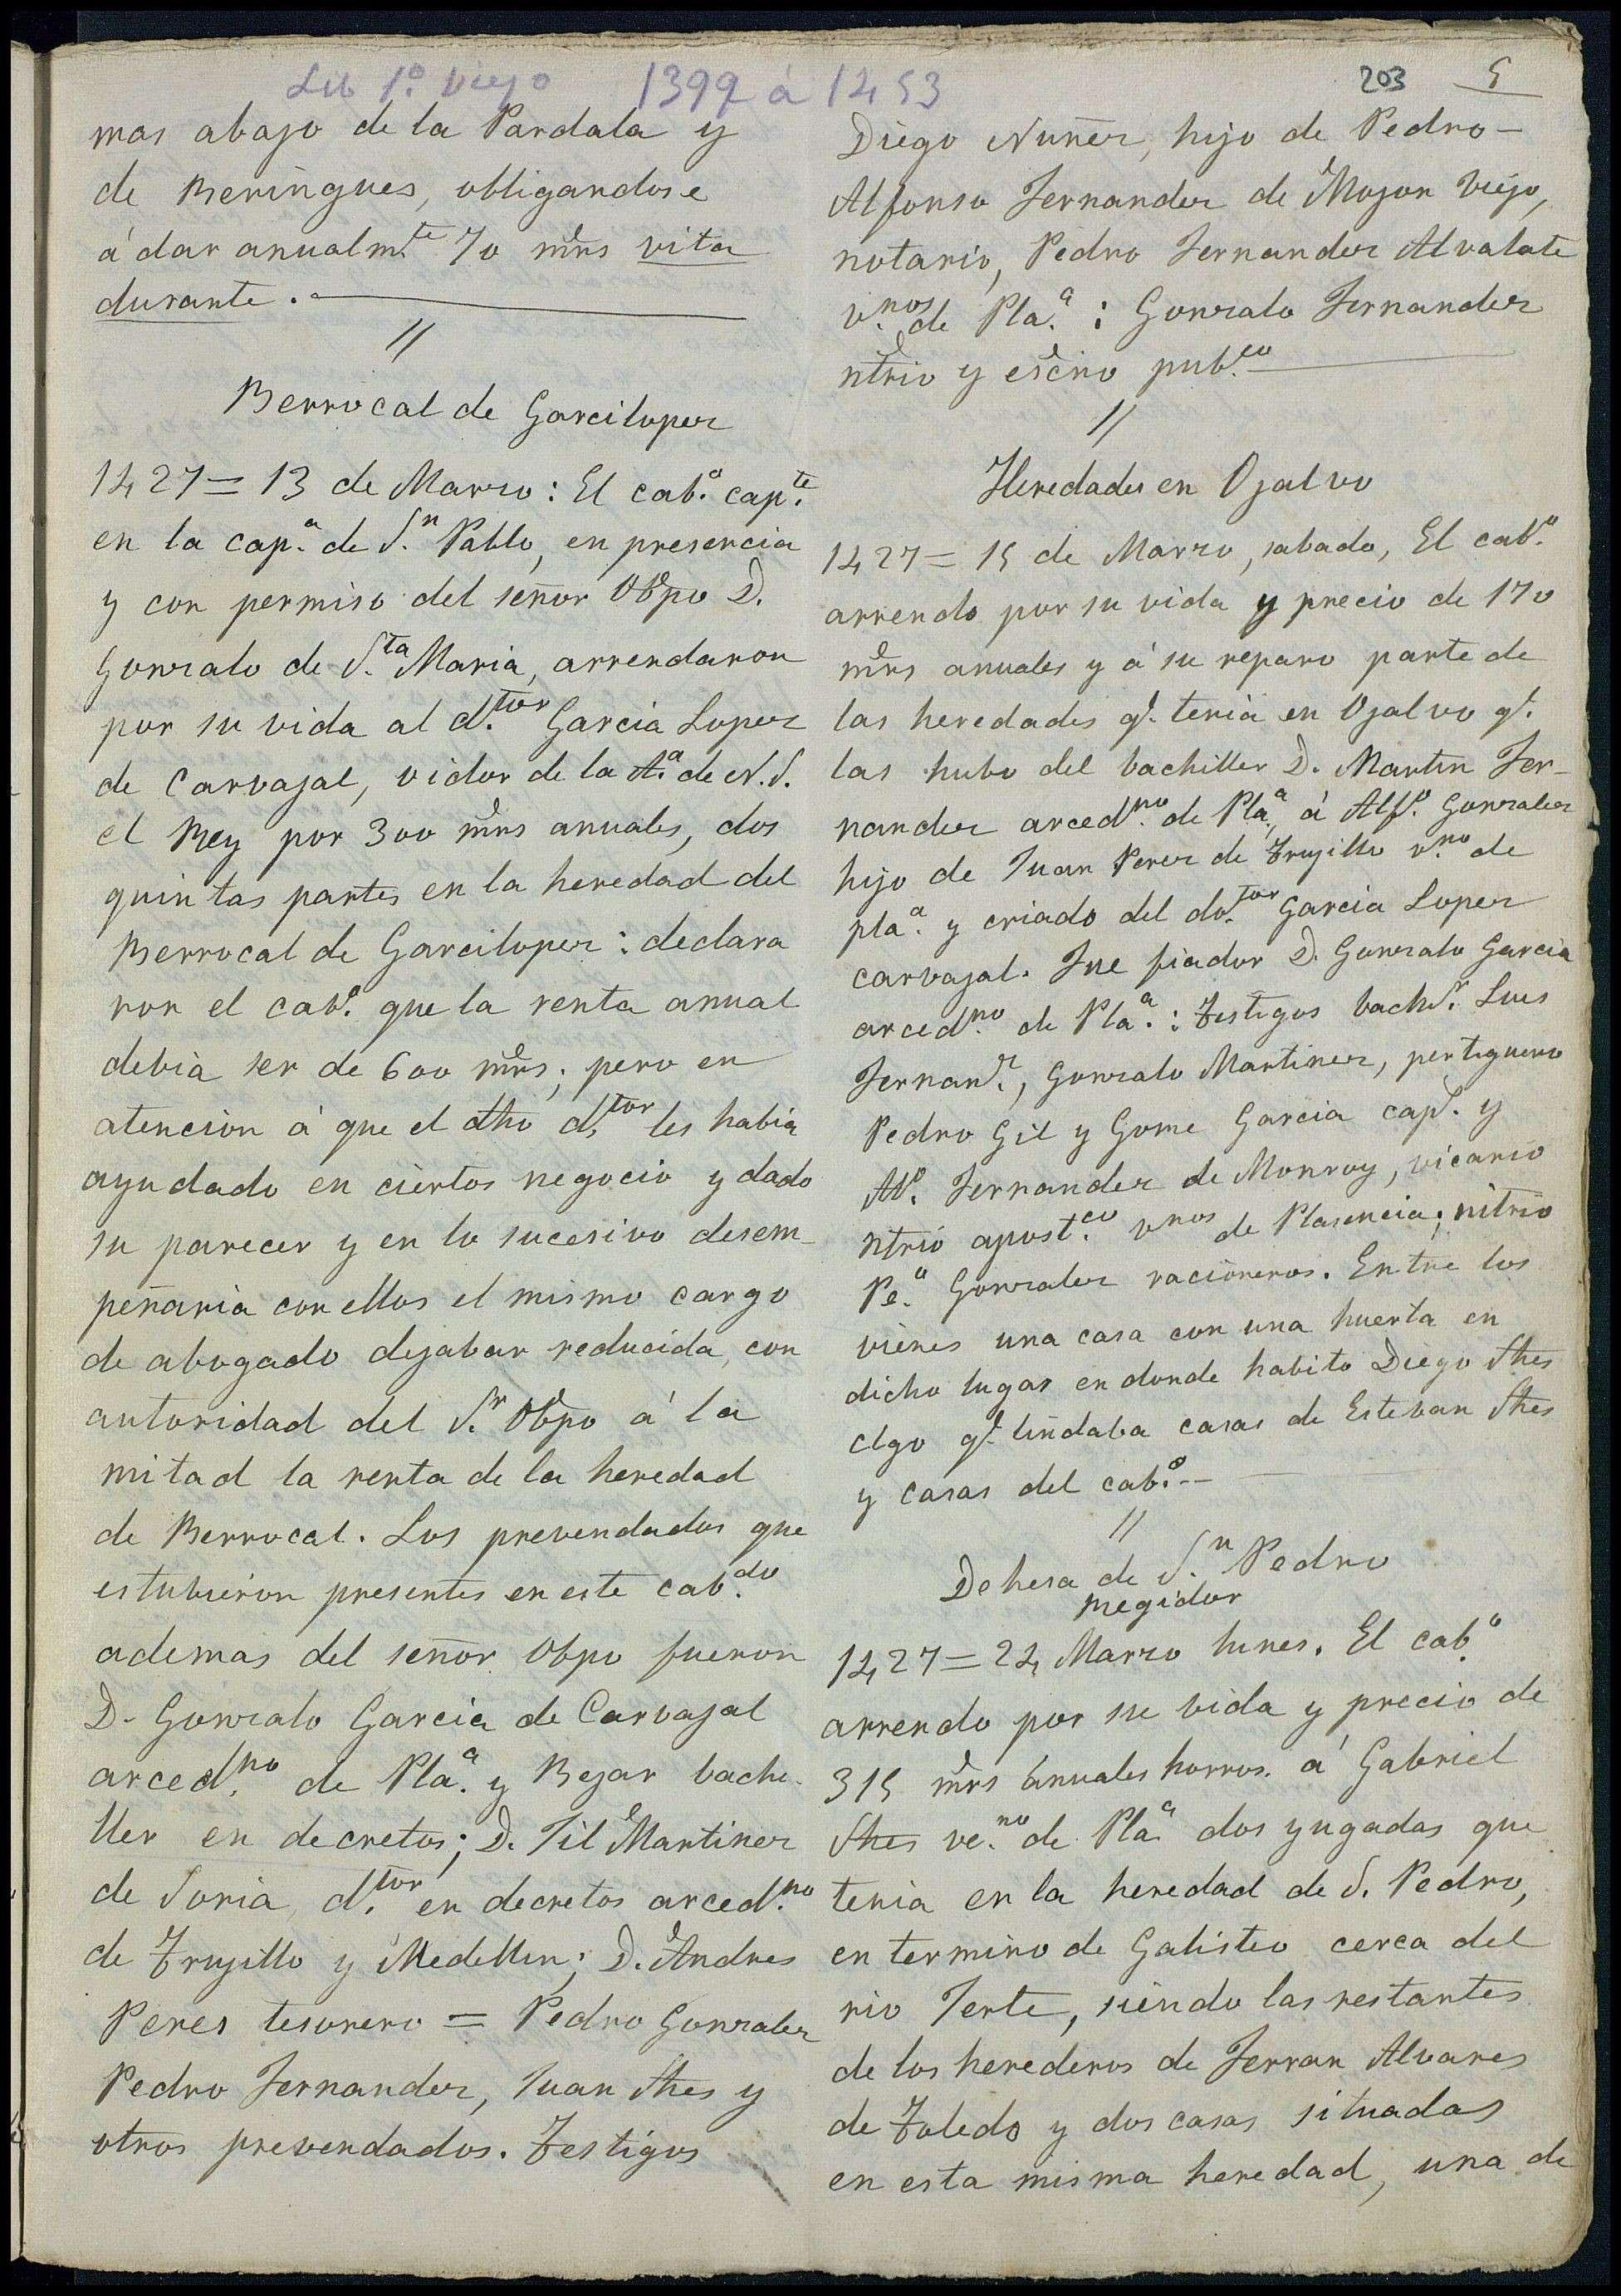 Lib 1.º viejo 1399 á 1453
203 5
mas abajo de la Pardala y
de Beringues, obligandose
á dar anualm.te 70 mrs vita
durante.
//
Berrocal de Garcilopez
1427 = 13 de Marzo: El cab.º cap.te
en la cap.a de S.n Pablo, en presencia
y con permiso del señor Obpo D.
Gonzalo de S.ta Maria, arrendaron
por su vida al d.tor Garcia Lopez
de Carvajal, oidor de la A.a de N.S.
el Rey por 300 mrs anuales, dos
quintas partes en la heredad del
Berrocal de Garcilopez: declara
ron el cab.º que la renta anual
debia ser de 600 mrs; pero en
atencion á que el dho d.tor les habia
ayudado en ciertos negocio y dado
su parecer y en lo sucesivo desem-
peñaria con ellos el mismo cargo
de abogado dejaban reducida, con
autoridad del S.r Obpo á la
mitad la renta de la heredad
de Berrocal. Los prevendados que
estubieron presentes en este cab.do
ademas del señor Obpo fueron
D. Gonzalo Garcia de Carvajal
arced.no de Pla.a y Bejar bachi-
ller en decretos; D. Gil Martinez
de Soria, d.tor en decretos arced.no
de Trujillo y Medellin; D. Andres
Peres tesorero = Pedro Gonzalez
Pedro Fernandez, Juan Shes y
otros prevendados. Testigos
Diego Nuñez, hijo de Pedro-
Alfonso Fernandez de Mojon Viejo,
notario, Pedro Fernandez Alvalate
v.nos de Pla.a: Gonzalo Fernandez
ntrio y escno pub.co
//
Heredades en Ojalvo
1427 = 15 de Marzo, sabado, El cab.º
arrendo por su vida y precio de 170
mrs anuales y á su reparo parte de
las heredades q.e tenia en Ojalvo q.e
las hubo del bachiller D. Martin Fer-
nandez arced.no de Pla.a, á Alf.º Gonzalez
hijo de Juan Perez de Trujillo v.no de
pla.a y criado del do.tor Garcia Lopez
carvajal. Fue fiador D. Gonzalo Garcia
arced.no de Pla.a: Testigos bach.r Luis
Fernan.z, Gonzalo Martinez, pertiguero
Pedro Gil y Gome Garcia cap.s y
Al.º Fernandez de Monroy, vicario
ntrio apost.co v.nos de Plasencia; nitrio
Pe.º Gonzalez racioneros. Entre los
vienes una casa con una huerta en
dicho lugar en donde habito Diego Shes
clgo q.e lindaba casas de Estevan Shes
y casas del cab.º --
//
Dehesa de S.n Pedro
Regidor
1427 = 24 Marzo lunes. El cab.º
arrendo por su vida y precio de
315 mrs anuales horros. á Gabriel
Shes ve.no de Pla.a dos yugadas que
tenia en la heredad de S. Pedro,
en termino de Galisteo cerca del
rio Jerte, siendo las restantes
de los herederos de Ferran Alvares
de Toledo y dos casas situadas
en esta misma heredad, una de